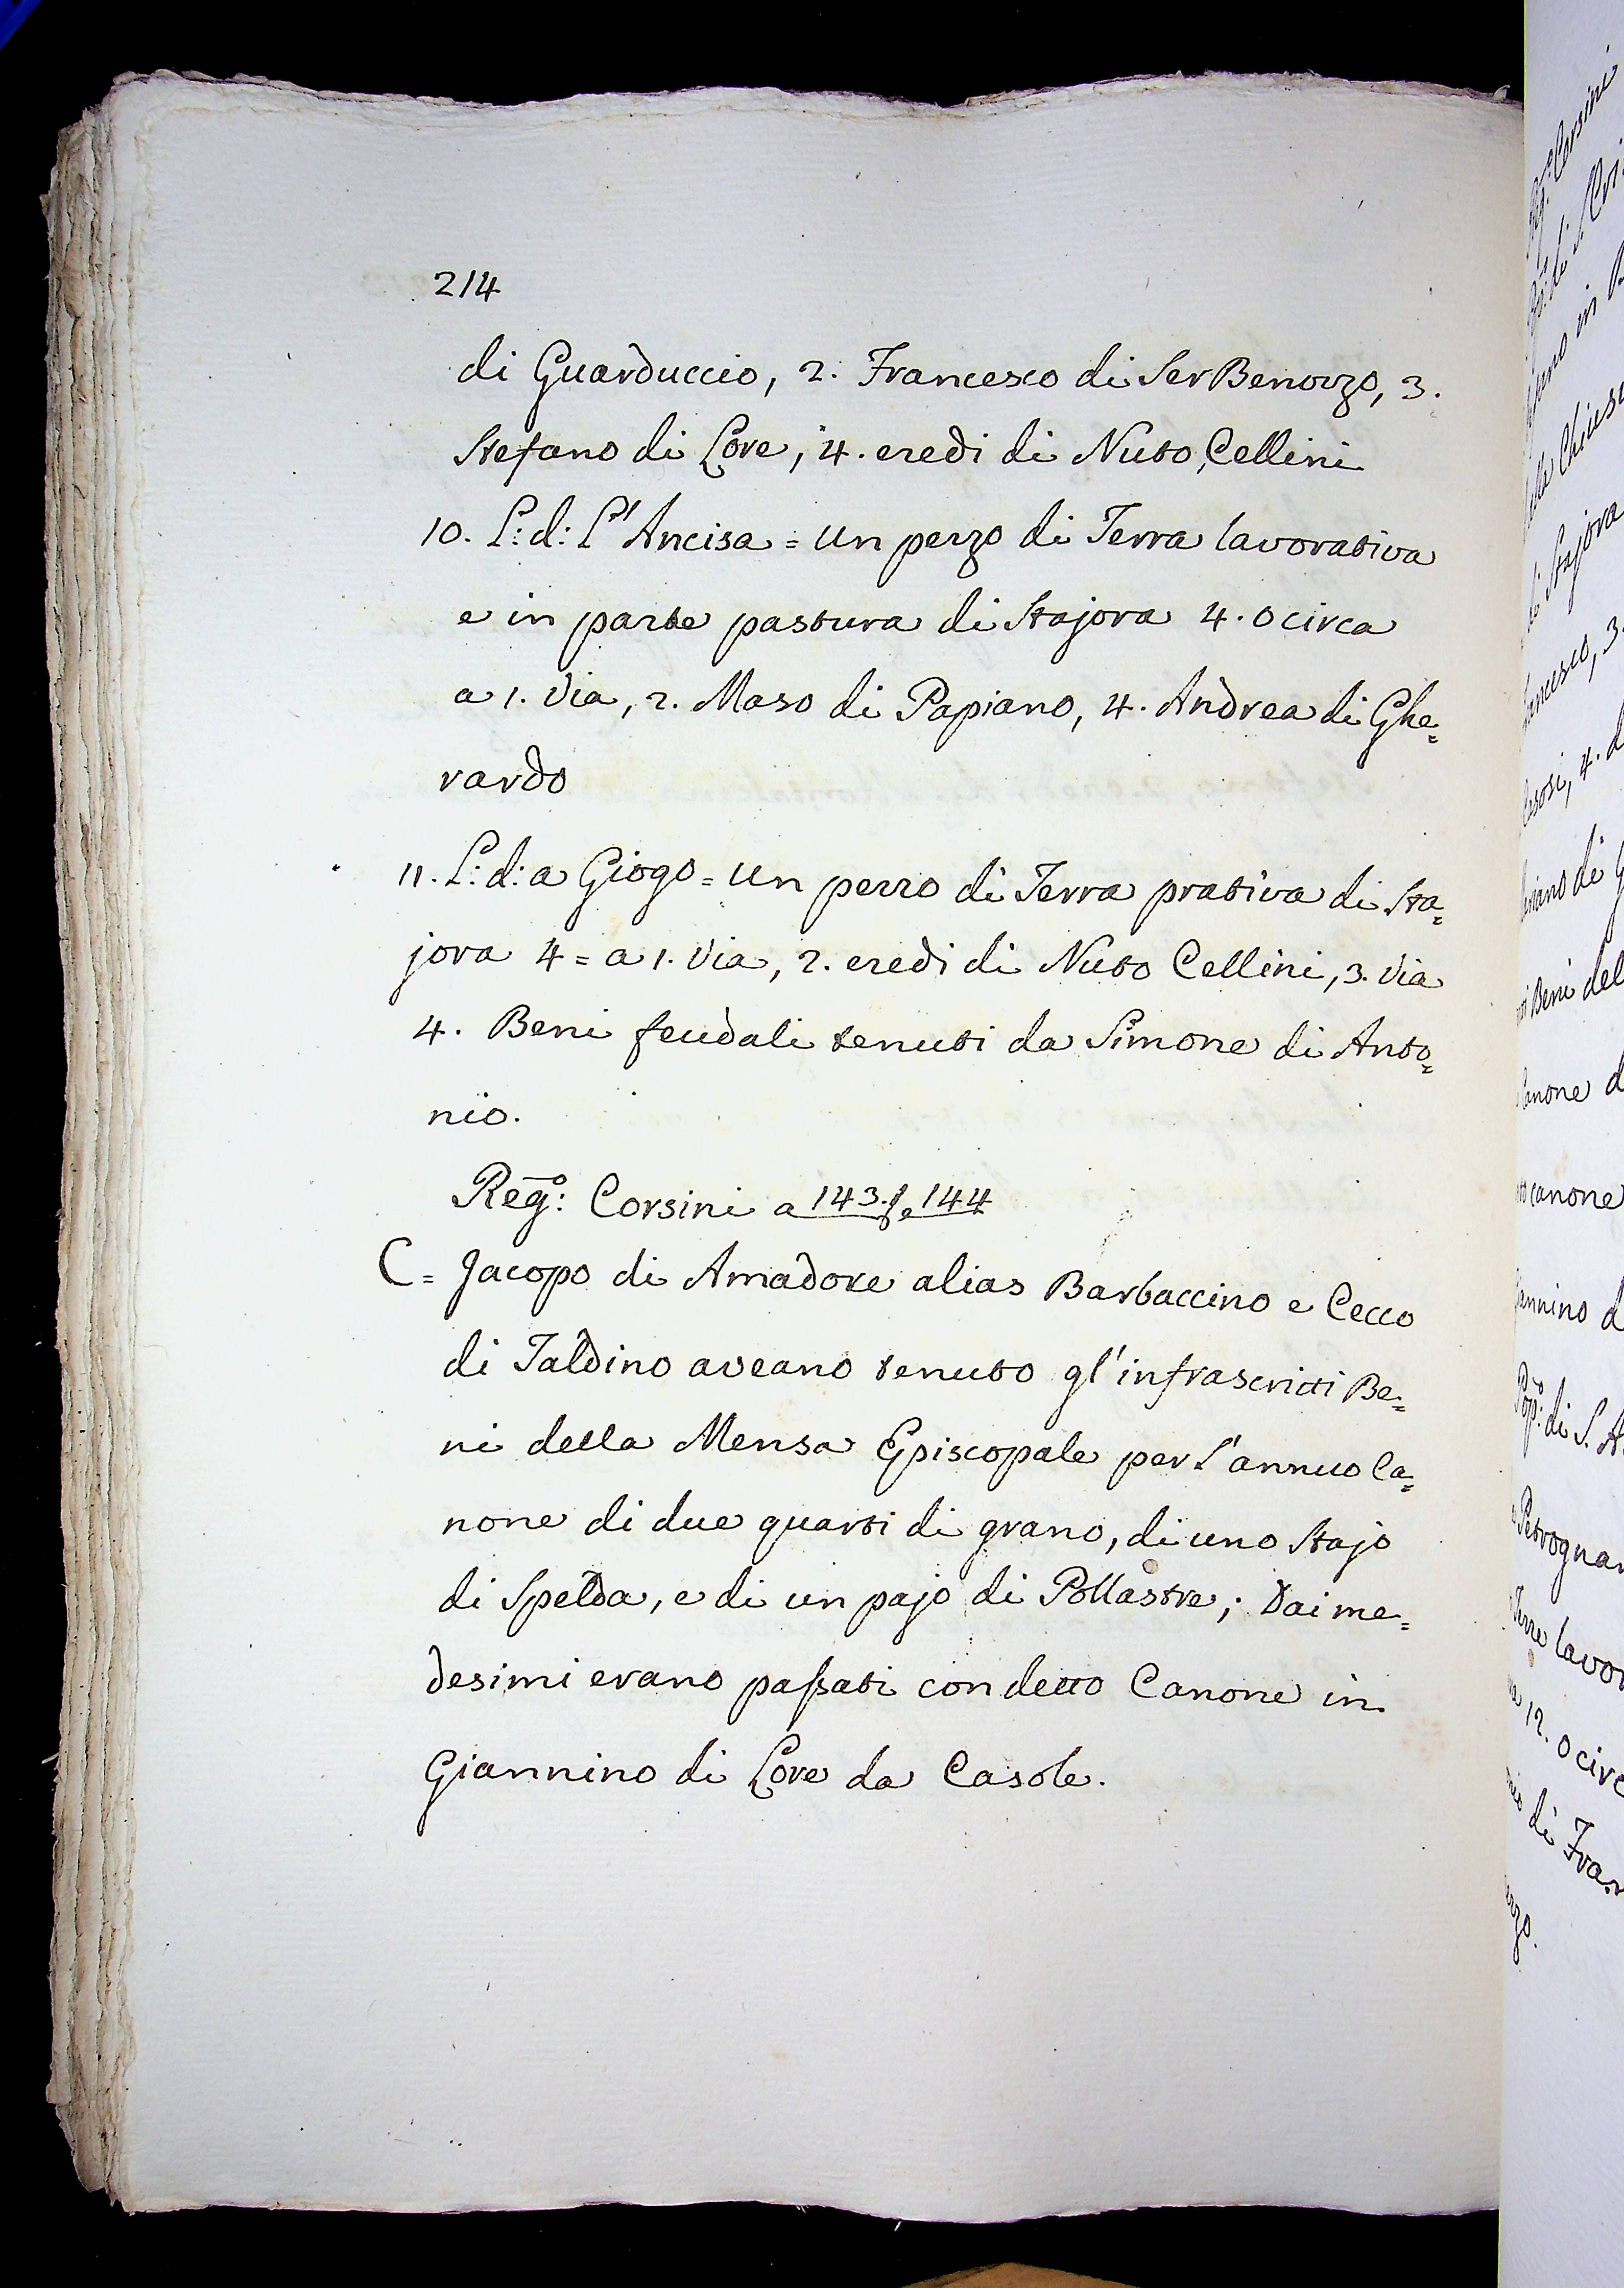 214
di Guarduccio, 2. Francesco di Ser Benozzo, 3.
Stefano di Lore, 4. eredi di Nuto Cellini
10. L: d: L'Ancisa = un pezzo di Terra lavorativa
e in parte pastura di Stajora 4. o circa
a 1. via, 2. Maso di Papiano, 4. Andrea di Ghe=
rardo
11. L: d: a Giogo = un pezzo di Terra prativa di Sta=
jora 4 = a 1. via, 2. eredi di Nuto Cellini, 3. via
4. Beni feudali tenuti da Simone di Anto=
nio.
Reg.º: Corsini a 143. e 144
C = Jacopo di Amadore alias Barbaccino e Cecco
di Taldino aveano tenuto gl'infrascritti Be=
ni della Mensa Episcopale per l'annuo Ca=
none di due quarti di grano, di uno Stajo
di Spelda, e di un pajo di Pollastre; Dai me=
desimi erano passati con detto Canone in
Giannino di Lore da Casole.
Corsini
in
Chiesa
di Stajora
Francesco, 3.
4.
di
Beni del
Canone
canone
Giannino
Pop.º: di S.
lavor
12. o circ
di Fran